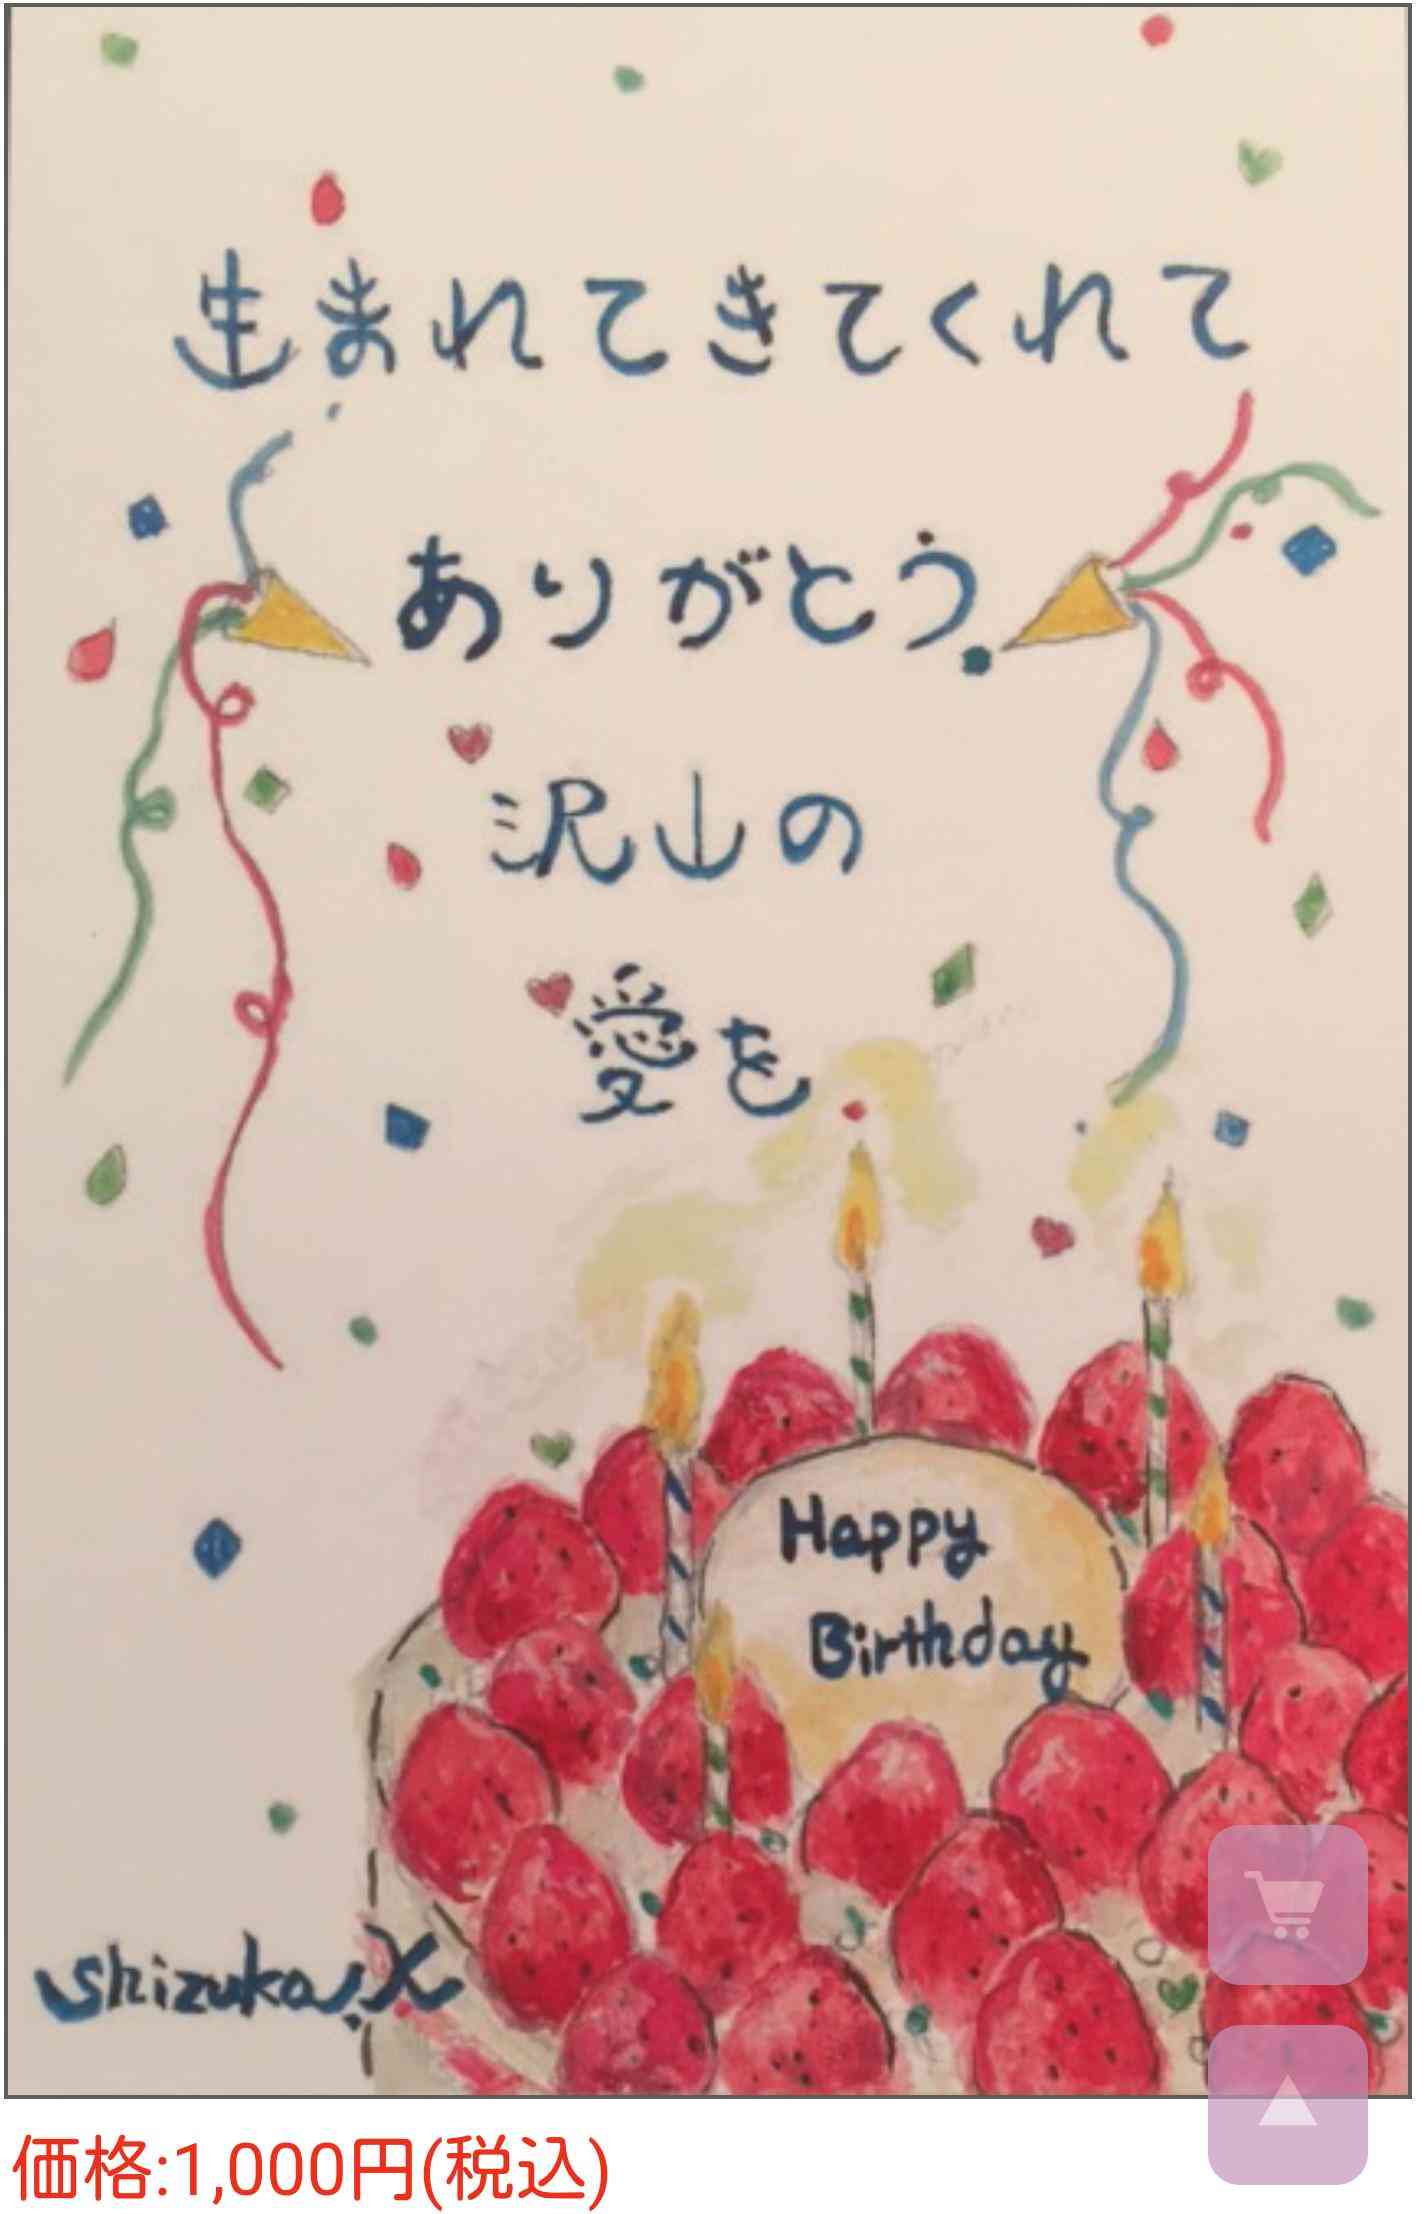 生まれてきてくれて
ありがとう
沢山の
愛を
Happy
Birthday
shizuka.X
価格:1,000円(税込)